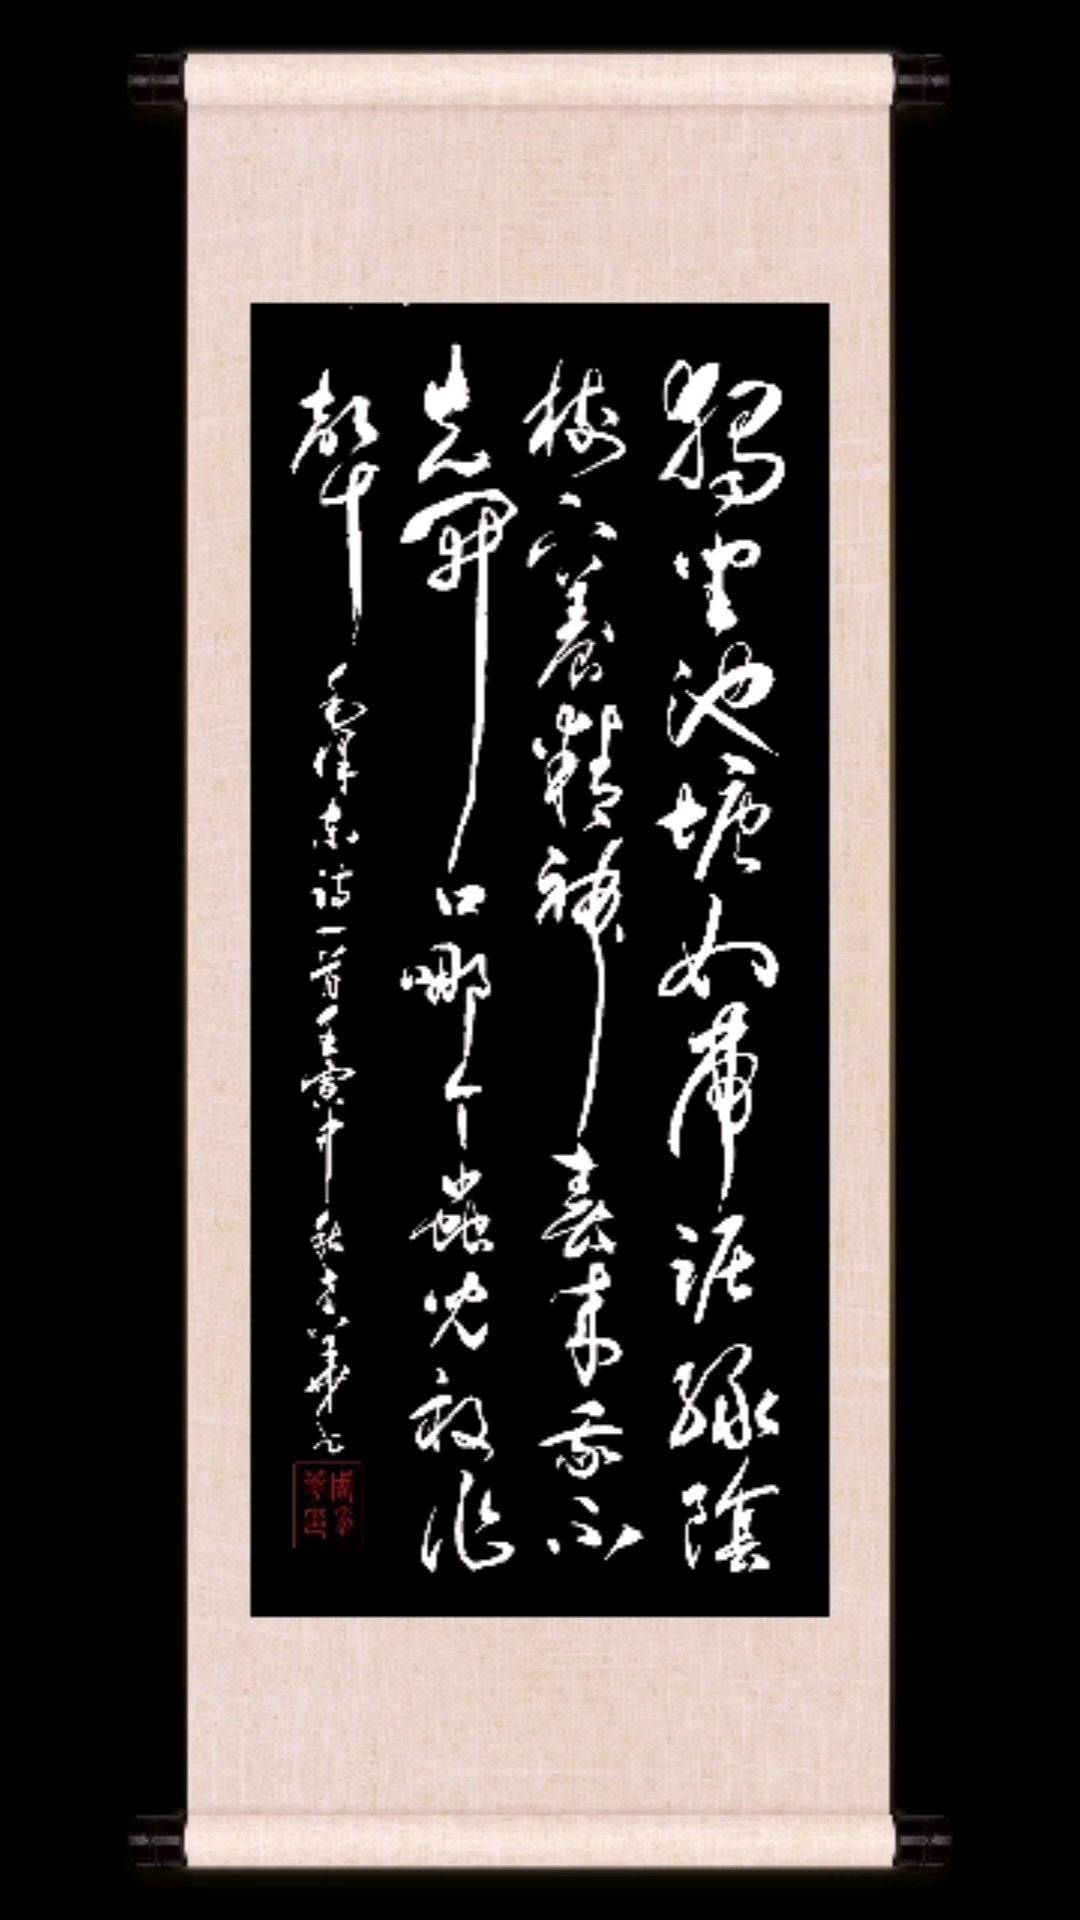 獨坐池塘如虎踞綠蔭
樹下養精神春來我不
先開口哪个蟲兒敢作
聲
毛澤東詩一首壬寅中秋